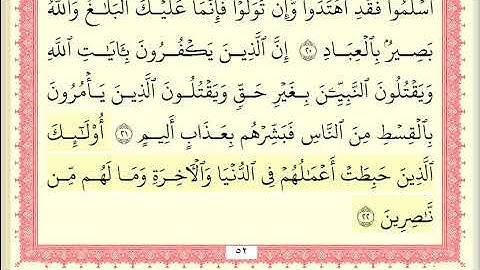 أَسۡلَمُواْ فَقَدِ ٱهۡتَدَواْۖ وَّإِن تَوَلَّوۡاْ فَإِنَّمَا عَلَيۡكَ ٱلۡبَلَٰغُۗ وَٱللَّهُ
بَصِيرُۢ بِٱلۡعِبَادِ ٢٠ إِنَّ ٱلَّذِينَ يَكۡفُرُونَ بِـَٔايَٰتِ ٱللَّهِ
وَيَقۡتُلُونَ ٱلنَّبِيِّـۧنَ بِغَيۡرِ حَقّٖ وَيَقۡتُلُونَ ٱلَّذِينَ يَأۡمُرُونَ
بِٱلۡقِسۡطِ مِنَ ٱلنَّاسِ فَبَشِّرۡهُم بِعَذَابٍ أَلِيمٍ ٢١ أُوْلَٰٓئِكَ
ٱلَّذِينَ حَبِطَتۡ أَعۡمَٰلُهُمۡ فِي ٱلدُّنۡيَا وَٱلۡأٓخِرَةِ وَمَا لَهُم مِّن
نَّٰصِرِينَ ٢٢
٥٢